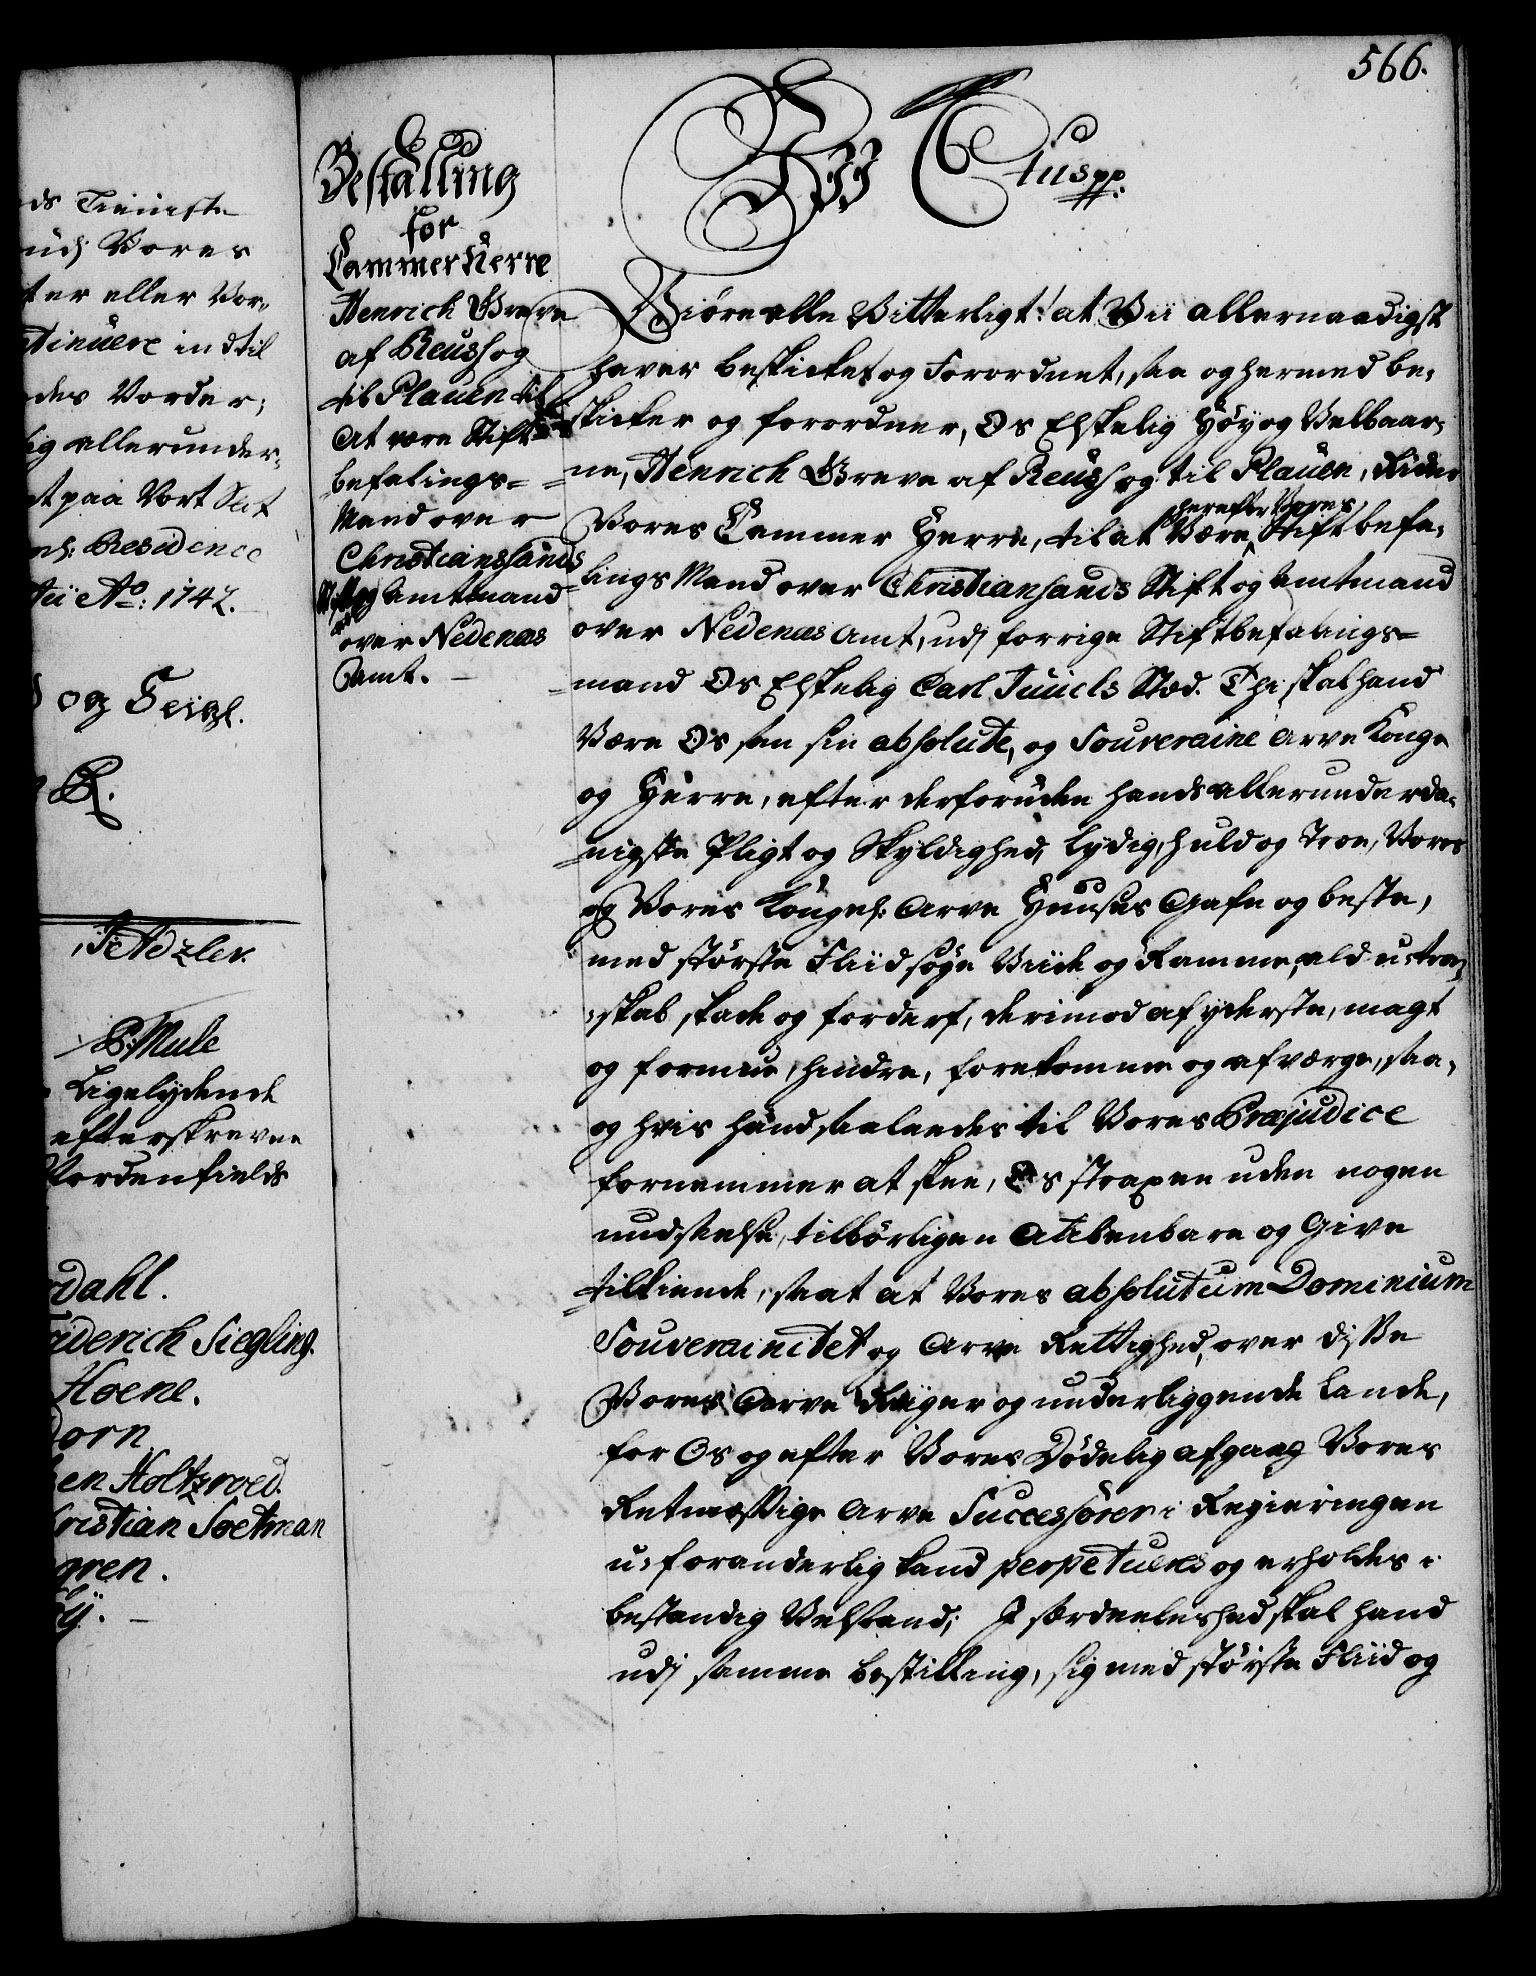 566.
ds Tieniste
udj Vores
ter eller Vor,,
ntinuere indtil
des Vorder;
lig allerunder,
t paa Vort Slot
Residence
tii Ao: 1742.
og Seigl.
R.
P: Mule
Ligelydende
efterskrevne
Nordenfields
dahl.
riderich Siegling.
Høene.
Dorn
en Holtzroed.
hristian Soetman
gren.
Bestalling
for
Cammer Herre
Henrich Greve
af Reuss og
til Plauen til
At være Stift-
befalings=
Mand over
Christianssands
Stift og Amtmand
over Nedenæs
Amt. -
Wii C tus pp:
Giøre alle Vitterligt: at Vii allernaadigst
haver beskicket og Forordnet, saa og hermed be,
skicker og forordner, Os Elskelig Høy og Velbaar,
ne, Henrich Greve af Reuss og til Plauen, Ridder
Vores Cammer Herre, til at Være herefter Vores Stiftbefa,
lings Mand over Christiansands Stift og Amtmand
over Nedenæs Amt, udj forrige Stiftbefalings=
mand Os Elskelig Carl Juuels Stæd. Thi skal hand
Være Os som sin absolute, og Souveraine Arve Konge
og Herre, efter derforuden hands allerunderda,
nigste Pligt og Skyldighed, lydig, huld og Troe, Vores
og Vores Kongel: Arve Huuses Gafn og beste,
med største Fliid søge Viide og Ramme, ald u-troe,
skab skade og forderf, derimod af yderste, magt
og formue, hindre, forekomme og afværge, saa,
og hvis hand saaledes til Vores Præjudice
fornemmer at skee, Os straxen uden nogen
undseelse, tilbørligen Aabenbare og Give
tilkiende, saat at Vores absolutum Dominium
Souverainitet og Arve Rettighed, over disse
Vores Arve Riiger og underliggende Lande,
for Os og efter Vores Dødelig afgang Vores
Retmessige Arve Successorer i Regieringen
u-foranderlig kand perpetueres og erholdes i
bestandig Velstand; I særdeeleshed skal hand
udj samme bestilling, sig med største Fliid og